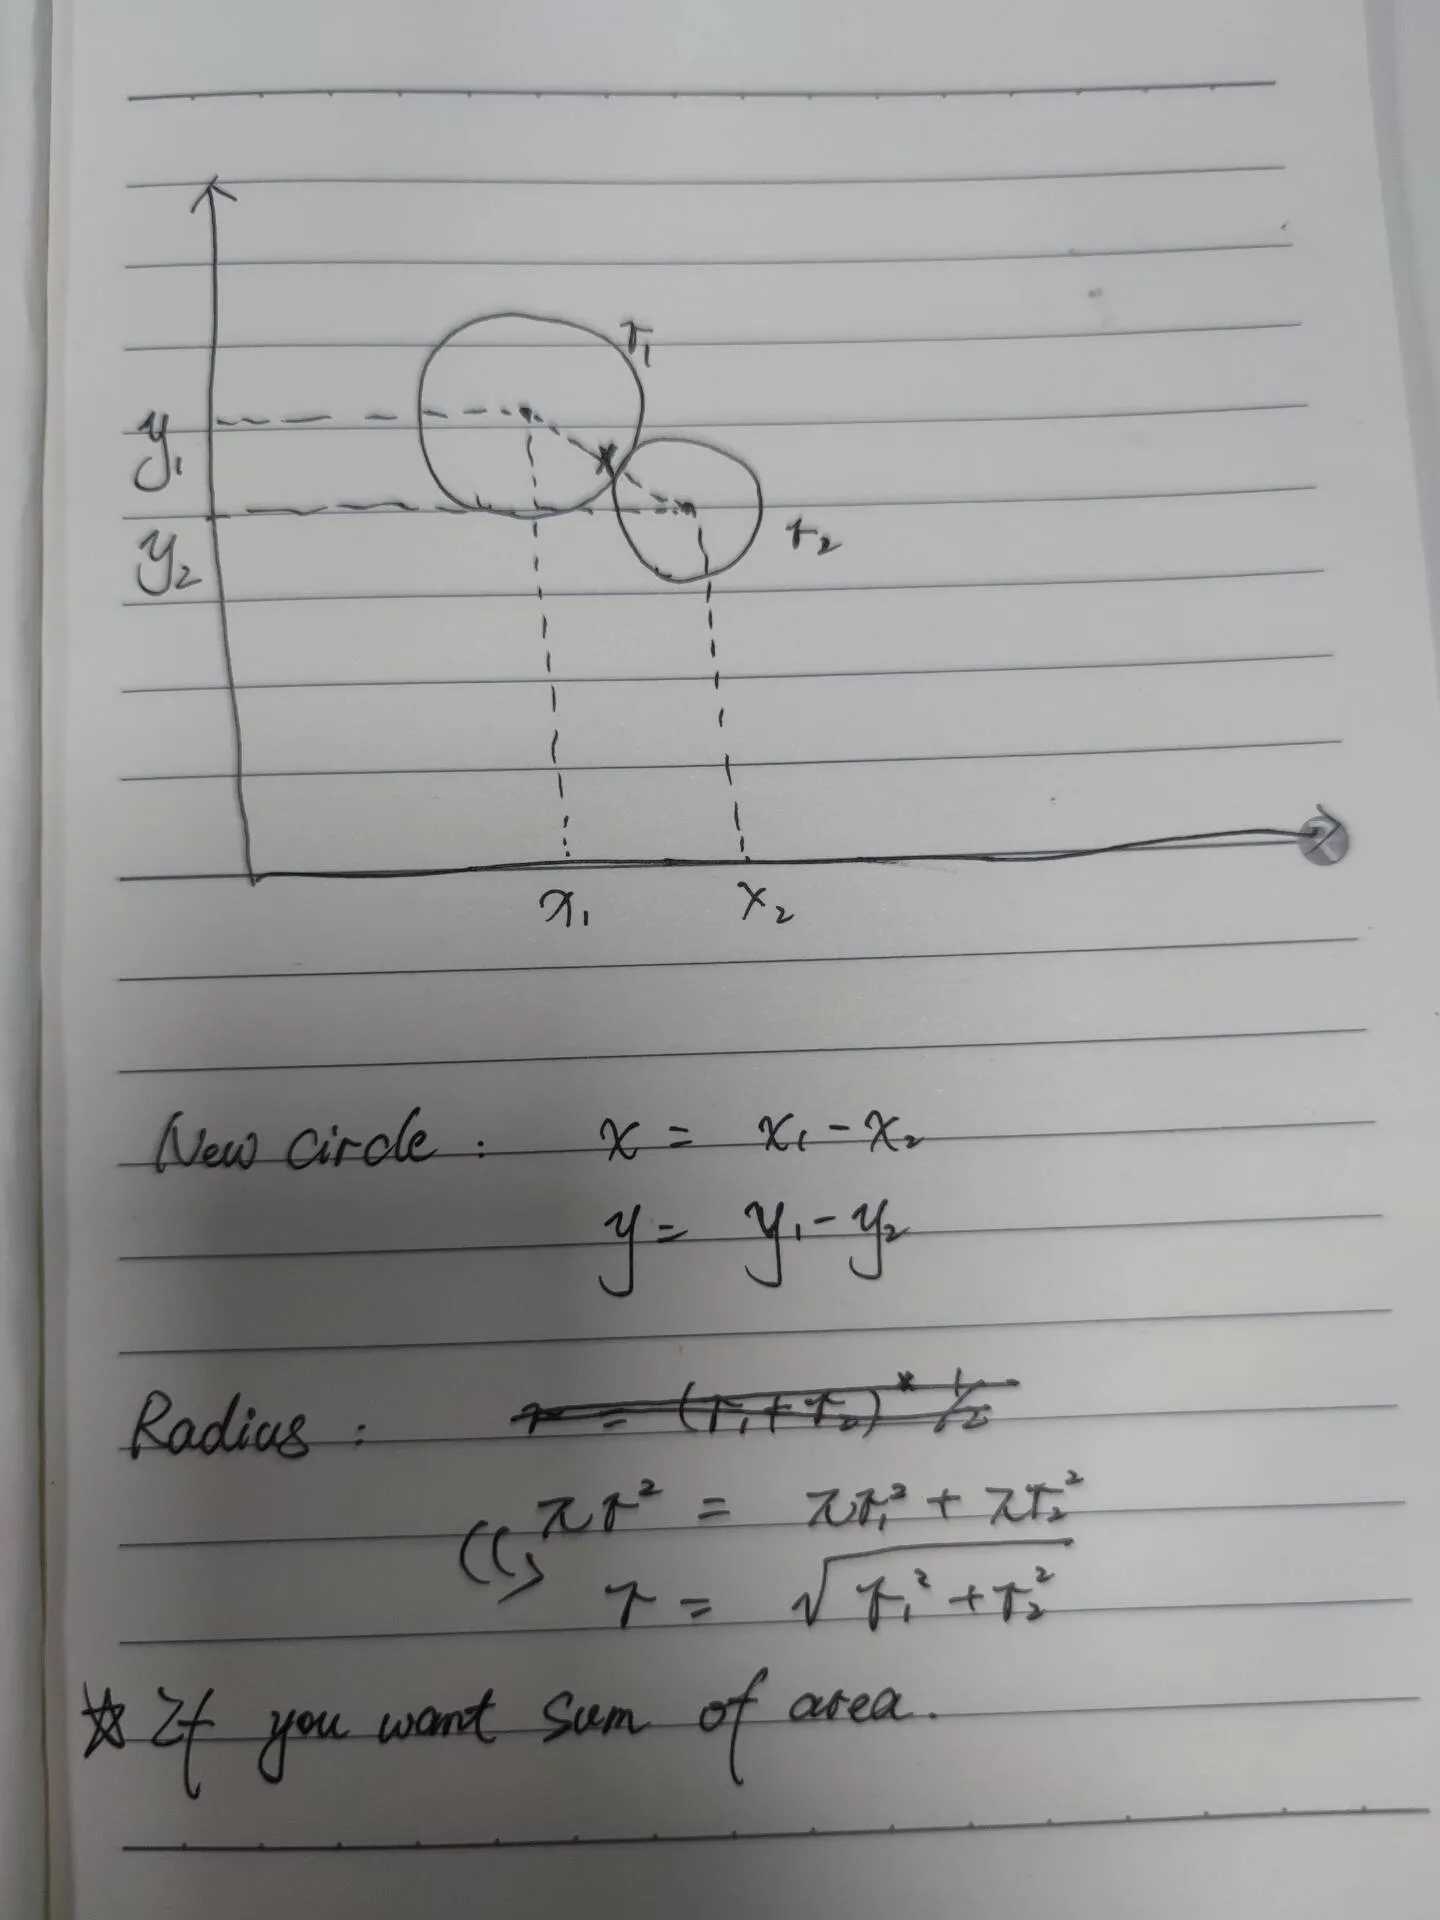 r₁
y₁
y₂
r₂
x₁ x₂
New circle : x = x₁ - x₂
y = y₁ - y₂
Radius : r = (r₁ + r₂) * 1/2
πr² = πr₁² + πr₂²
r = √(r₁² + r₂²)
☆ If you want sum of area.